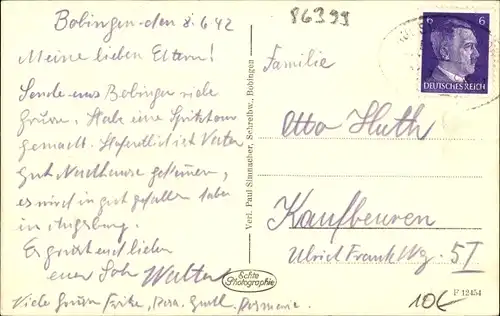 Bobingen den 8.6.42
Meine lieben Eltern!
Sende aus Bobingen viele
Grüsse. Habe eine Spritztour
gemacht. Hoffentlich ist Vater
gut Nachhause gekommen,
es wird ihm gut gefallen haben
in Augsburg.
Es grüsst euch lieben
euer Sohn Walter
Viele Grüsse
86399
6 6
DEUTSCHES REICH
Familie
Otto Huth
Kaufbeuren
Ulrich Frank Wg. 5 I
Verl. Paul Slannacher, Schreibw., Bobingen
Echte
Photographie
F 12454
10€